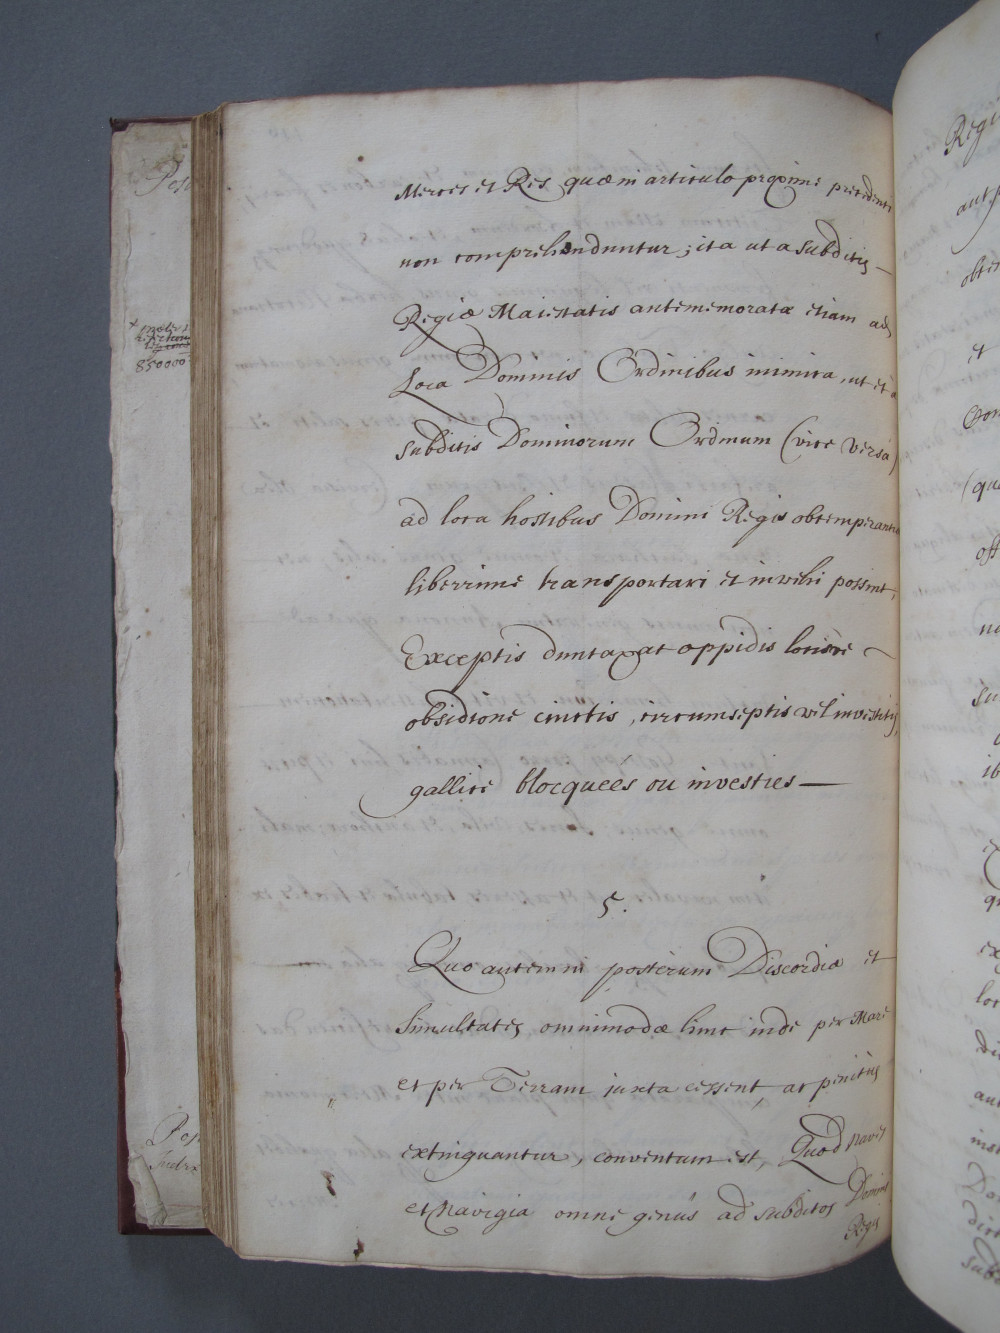 Merces et Res quæ in articulo proxime precedenti
non comprehenduntur; ita ut a subditis —
Regiæ Maiestatis antememorata etiam ad
Loca Dominis Ordinibus inimica, ut et a
subditis Dominorum Ordinum (vice versâ)
ad loca hostibus Domini Regis obtemperantia
liberrime transportari et invehi possint,
Exceptis duntaxat oppidis locisve —
obsidione cinctis, circumseptis vel investitis,
gallice blocquees ou investies —
5.
Quo autem in posterum Discordiæ et
Simultates omnimodæ hinc inde per Mare
et per Terram juxta cessent, ac penitus
extinguantur, conventum est, Quod naves
et Navigia omne genus ad subditos Domini
Regis
Regi
aut
obte
et
(qu
off
su
ib
ex
loc
aut
inst
Do
dict
sub
Pos
850000
Pos
Judic